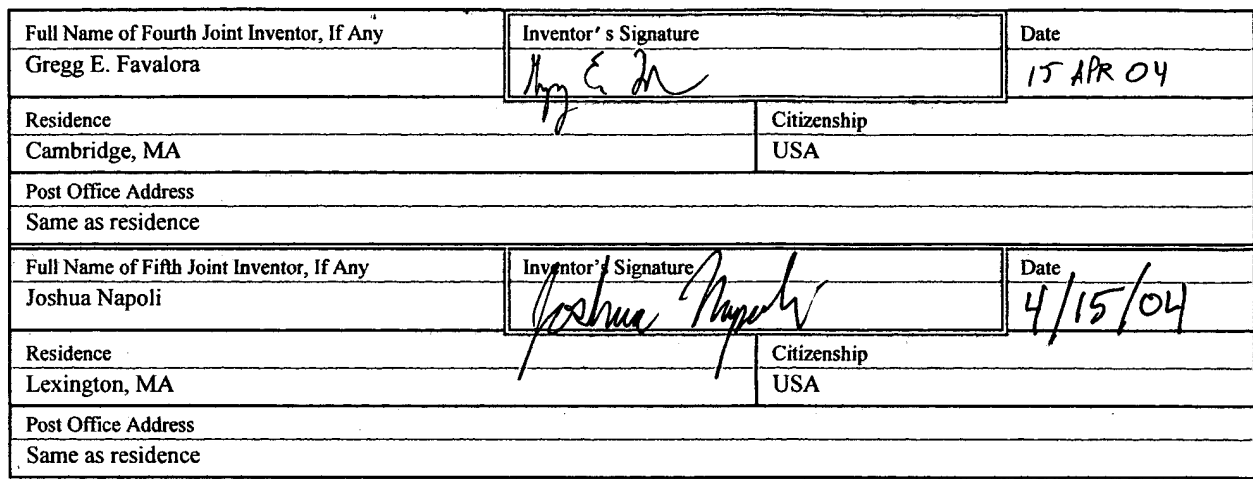 Full Name of Fourth Joint Inventor, If Any Inventor's Signature Date
Gregg E. Favalora 15 APR 04
Residence Citizenship
Cambridge, MA USA
Post Office Address
Same as residence
Full Name of Fifth Joint Inventor, If Any Inventor's Signature Date
Joshua Napoli Joshua Napoli 4/15/04
Residence Citizenship
Lexington, MA USA
Post Office Address
Same as residence